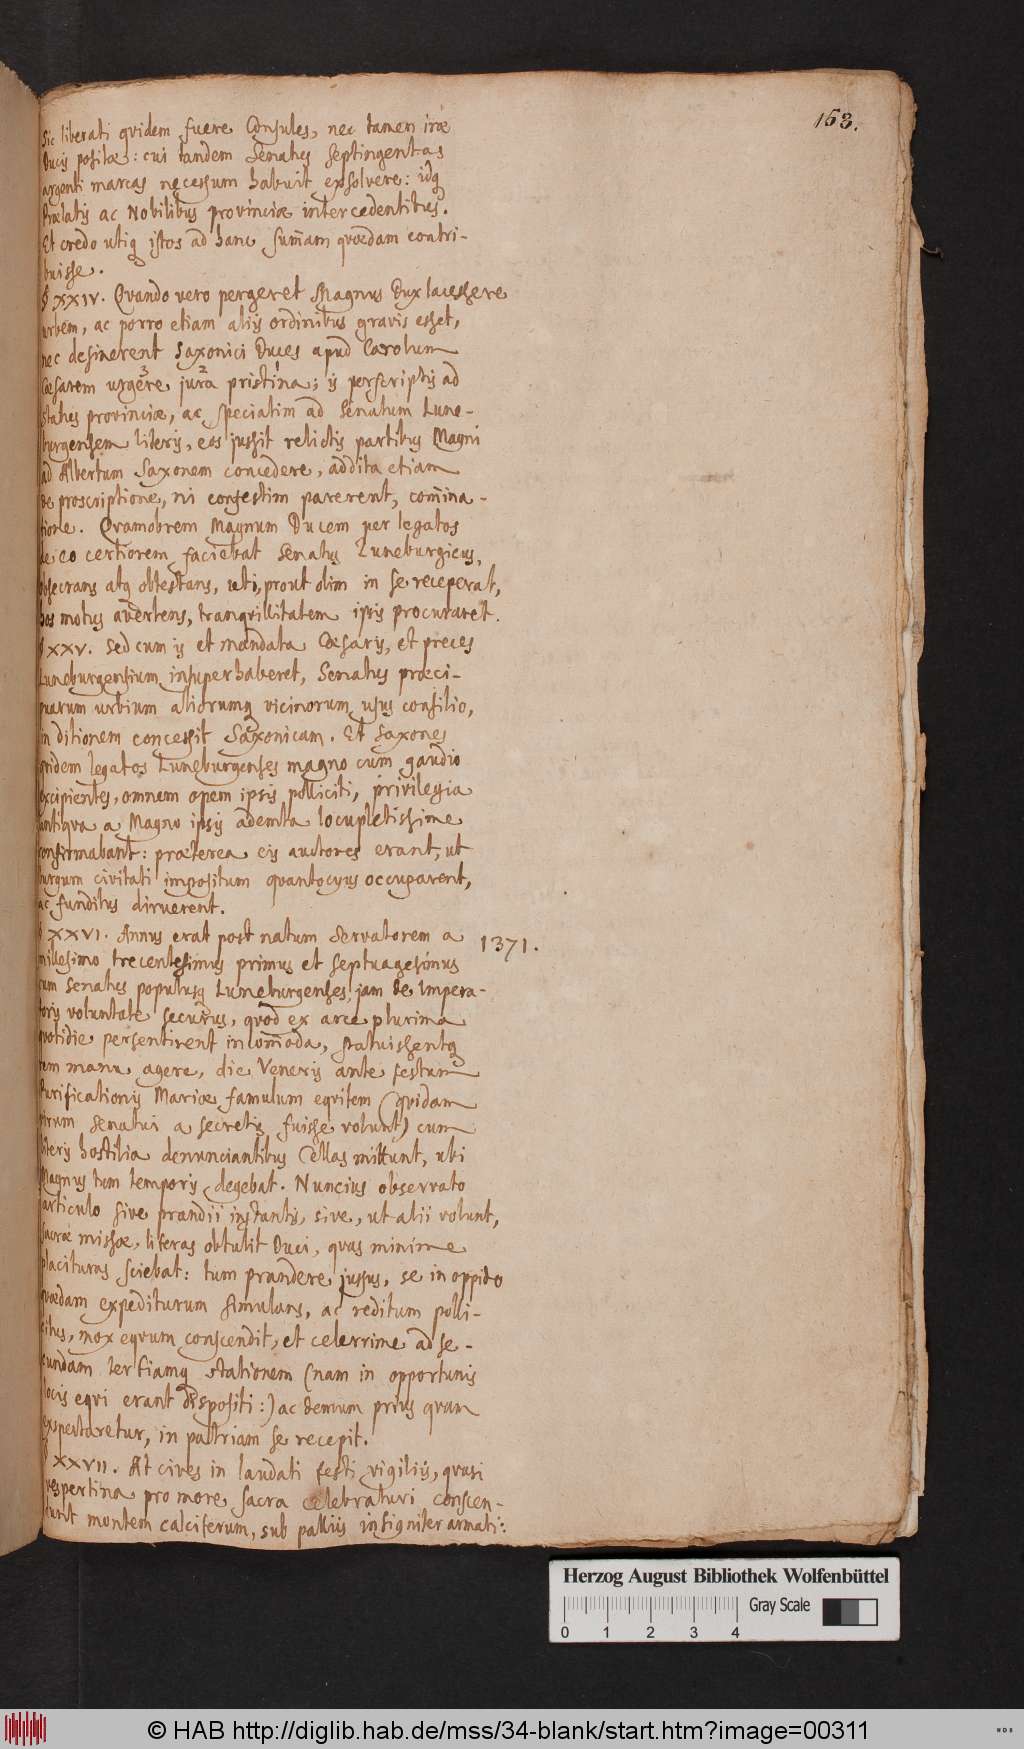 163.
Sic liberati qvidem fuere Consules, nec tamen iræ
Ducis positæ: cui tandem Senatus septingentas
argenti marcas necessum habuit exsolvere: idq
Prælatis ac Nobilibus provinciæ intercedentibus.
Et credo utiq istos ad hanc sum̄am quædam contri-
buisse.
§ XXIV. Qvando vero pergeret Magnus Dux lacessere
urbem, ac porro etiam aliis ordinibus gravis esset,
nec desinerent Saxonici Duces apud Carolum
Cæsarem urgere jura pristina; is perscriptis ad
status provinciæ, ac speciatim ad Senatum Lune-
burgensem literis, eos jussit relictis partibus Magni
ad Albertum Saxonem concedere, addita etiam
de proscriptione, ni confestim parerent, com̄ina-
tione. Qvamobrem Magnum Ducem per legatos
de eo certiorem faciebat Senatus Luneburgicus,
obsecrans atq obtestans, uti, prout olim in se receperat,
hos motus avertens, tranqvillitatem ipsis procuraret.
§ XXV. Sed cum is et mandata Cæsaris, et preces
Luneburgensium insuper haberet, Senatus præci-
puarum urbium aliorumq vicinorum usus consilio,
in ditionem concessit Saxonicam. Et Saxones
qvidem legatos Luneburgenses magno cum gaudio
excipientes, omnem opem ipsis polliciti, privilegia
antiqva a Magno ipsis ademta locupletissime
confirmabant: præterea eis auctores erant, ut
burgum civitati impositum quantocyus occuparent,
ac funditus diruerent.
§ XXVI. Annus erat post natum Servatorem a 1371.
millesimo trecentesimus primus et septuagesimus
cum Senatus populusq Luneburgenses jam de Impera-
toris voluntate securus, quod ex arce plurima
quotidie persentirent incom̄oda, statuissentq
rem manu agere, die Veneris ante festum
Purificationis Mariæ famulum eqvitem (qvidam
virum Senatui a secretis fuisse volunt) cum
literis hostilia denunciantibus Cellas mittunt, ubi
Magnus tum temporis degebat. Nuncius observato
articulo sive prandii instantis, sive, ut alii volunt,
sacræ missæ, literas obtulit Duci, quas minime
placituras sciebat: tum prandere jussus, se in oppido
quædam expediturum simulans, ac reditum polli-
citus, mox eqvum conscendit, et celerrime ad se-
cundam tertiamq stationem (nam in opportunis
locis eqvi erant dispositi:) ac demum prius quam
expectaretur, in patriam se recepit.
§ XXVII. At cives in laudati festi vigiliis, quasi
vespertina pro more sacra celebraturi conscen-
dunt montem calciferum, sub palliis insigniter armati:
Herzog August Bibliothek Wolfenbüttel
Gray Scale
0 1 2 3 4
© HAB http://diglib.hab.de/mss/34-blank/start.htm?image=00311